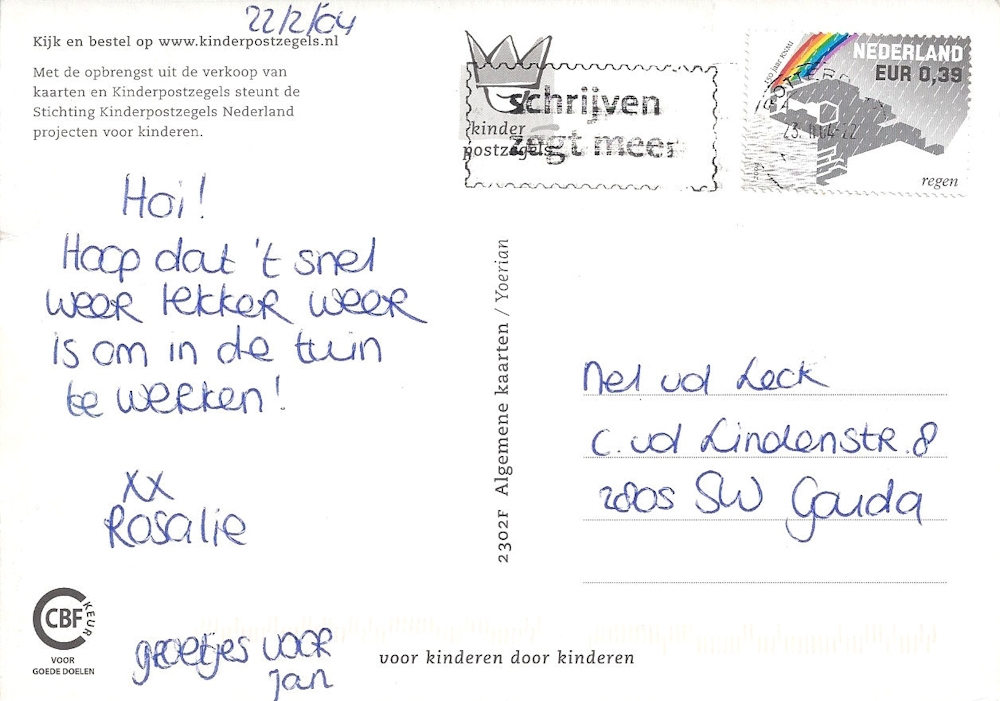 22/2/04
Kijk en bestel op www.kinderpostzegels.nl
Met de opbrengst uit de verkoop van
kaarten en Kinderpostzegels steunt de
Stichting Kinderpostzegels Nederland
projecten voor kinderen.
kinder
postzegels
schrijven
zegt meer
NEDERLAND
EUR 0,39
regen
Hoi!
Hoop dat 't snel
weer lekker weer
is om in de tuin
te werken!
xx
Rosalie
groetjes voor
Jan
2302F Algemene kaarten / Yoerian
Nel vd Leck
C. vd Lindenstr. 8
2805 SW Gouda
CBF
KEUR
VOOR
GOEDE DOELEN
voor kinderen door kinderen